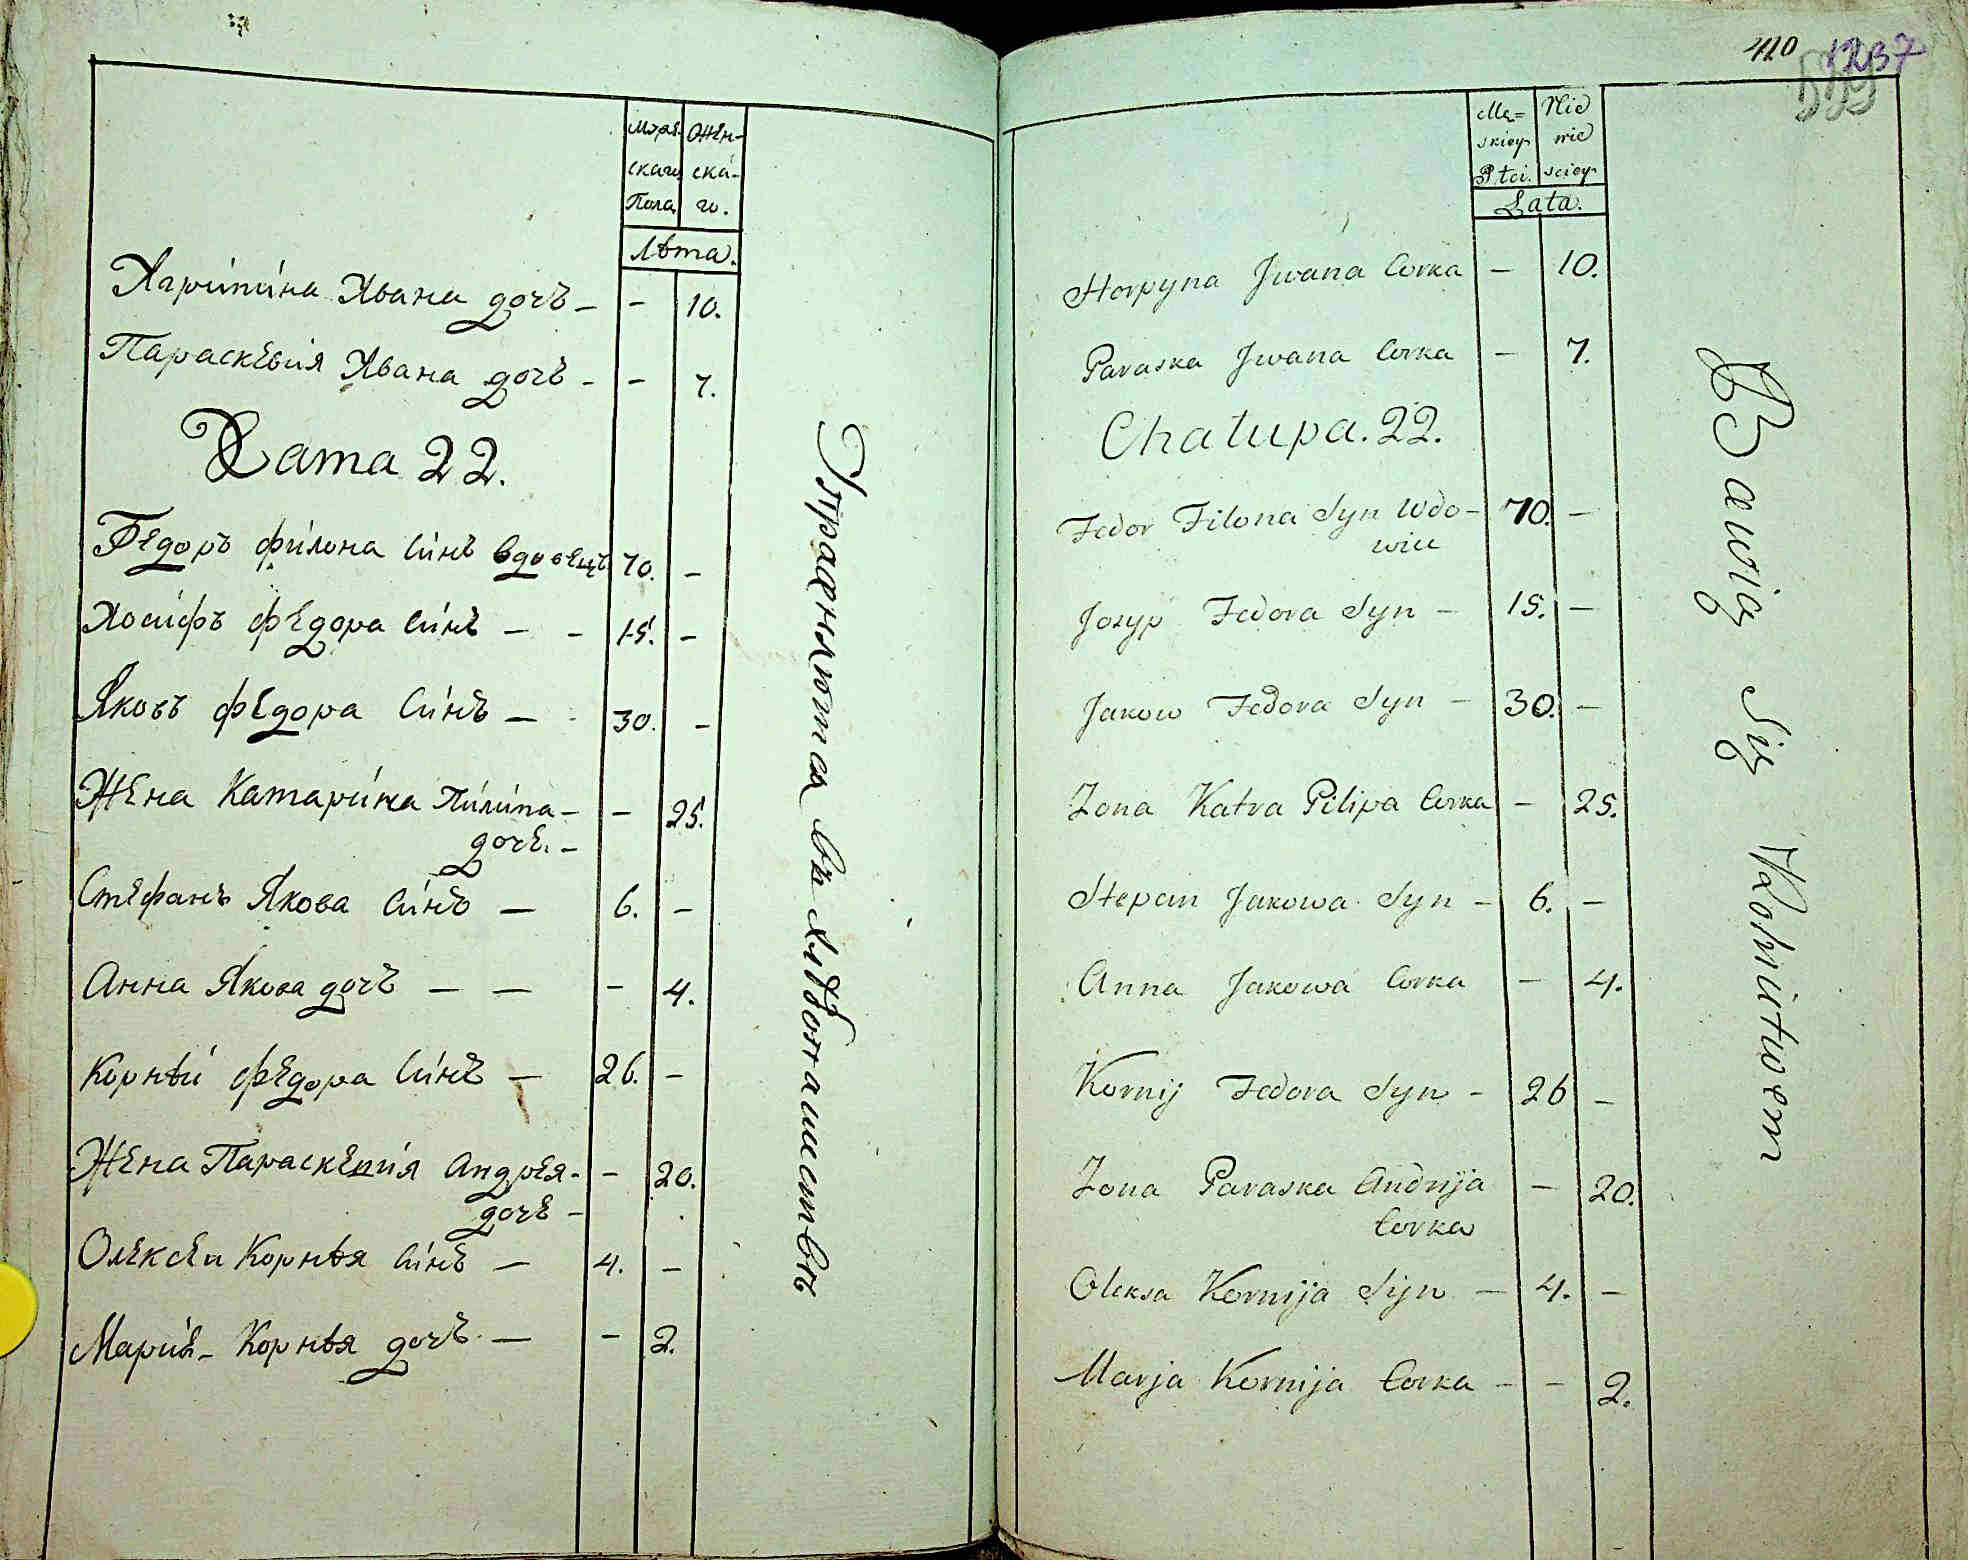 Мужескаго Пола
Женскаго.
Лѣта.
Хгрипина Хвана дочъ - - 10.
Параскевия Хвана дочъ - - 7.
Хата 22.
Федоръ филона синъ вдовецъ 70. -
Хосифъ федора синъ - - 15. -
Яковъ федора Синъ - 30. -
Жена Катарина Пилипа - - 25.
дочъ. -
Стефанъ Якова Синъ - 6. -
Анна Якова дочъ - - - 4.
Корнѣй федора Синъ - 26. -
Жена Параскевия Андрея - - 20.
дочъ -
Олексеи Корнѣя Синъ - 4. -
Мария - Корнѣя дочъ - - 2.
Упражняются въ хлѣбопашествѣ
410 1237
Mę=skiey Płci.
Niewiesciey
Lata.
Horpyna Jwana Corka - 10.
Paraska Jwana Corka - 7.
Chałupa. 22.
Fedor Filona Syn Wdo- 70. -
wiec
Josyp Fedora Syn - 15. -
Jakow Fedora Syn - 30. -
Zona Katra Pilipa Corka - 25.
Stepan Jakowa Syn - 6. -
Anna Jakowa Corka - 4.
Kornij Fedora Syn - 26 -
Zona Paraska Andrija - 20.
Corka
Oleksa Kornija Syn - 4. -
Marja Kornija Corka - - 2.
Bawią Się Rolnictwem